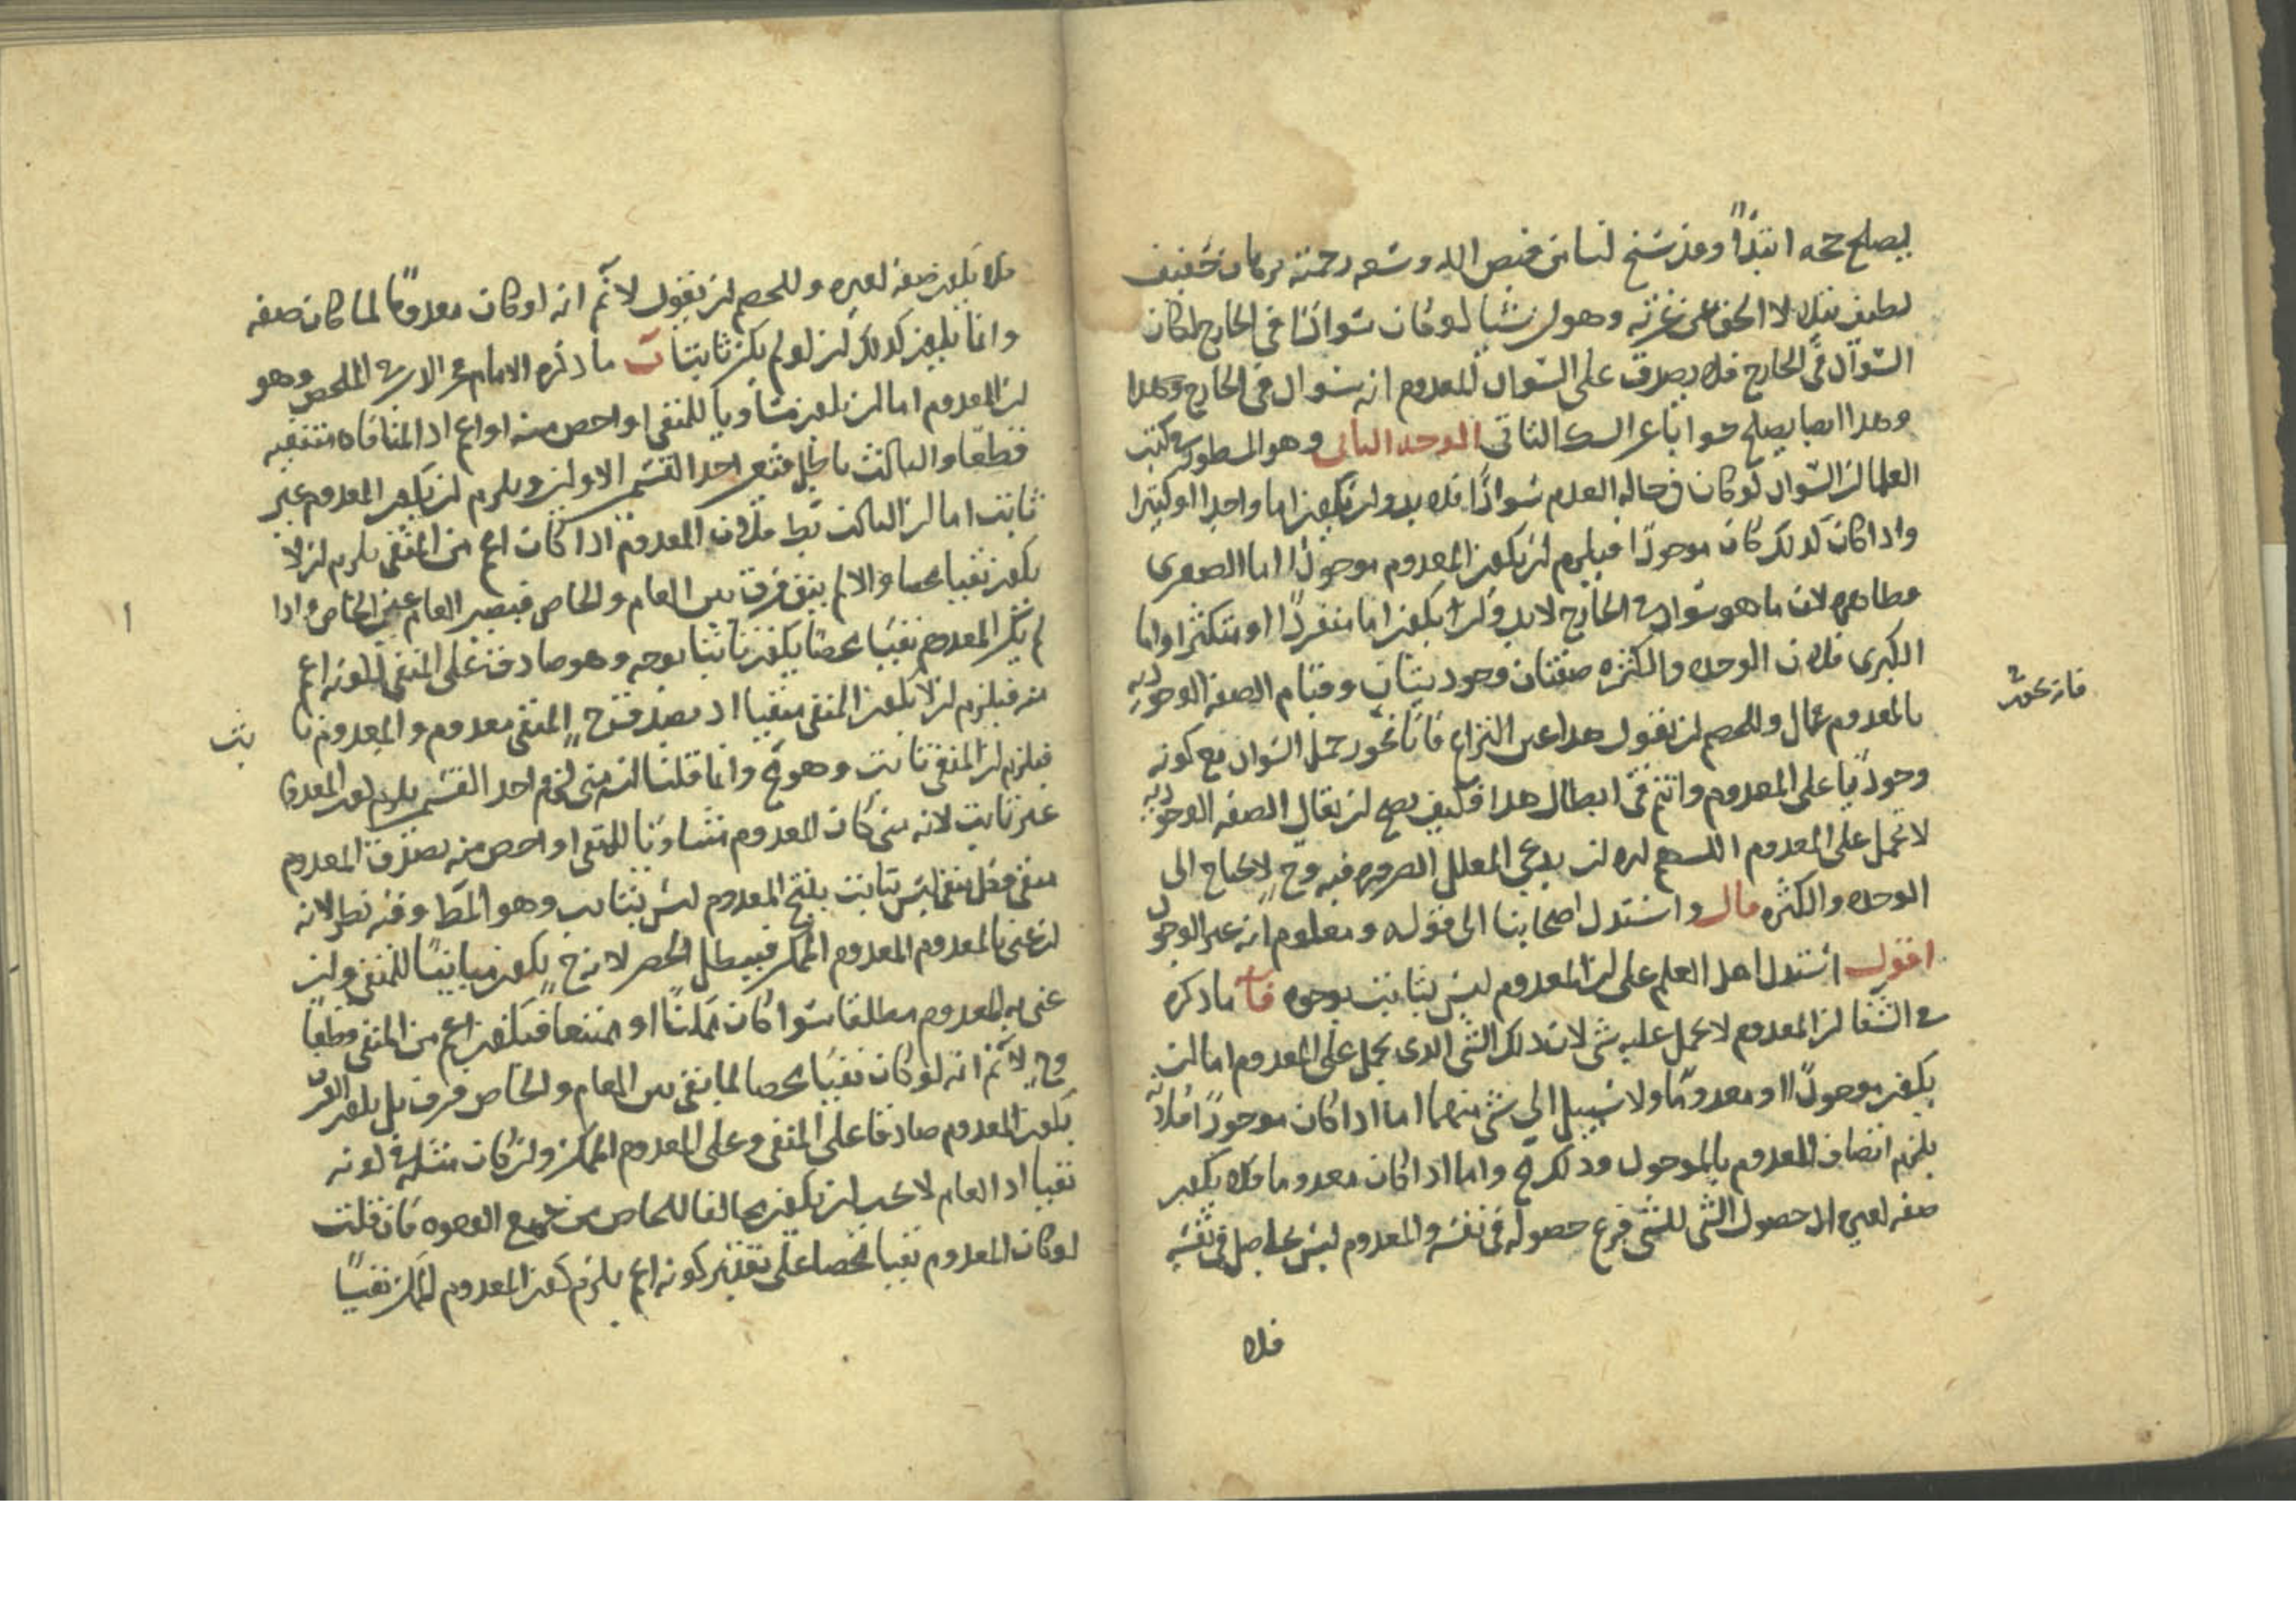 يصلح حجه ابتداً وقد سنح لنا من فيض الله وسعه رحمته برهان خفيف
لطيف وهو ان شيا لو كان سوادًا في الخارج لكان
السواد في الخارج فلا يصدق على السواد المعدوم انه سواد في الخارج وهذا
وهذا ايضا يصلح جوابا عن الشك الثاني الوجه الثاني وهو المسطور في كتب
العلما ان السواد لو كان في حاله العدم سوادًا فلا بد وان يكون اما واحدا او كثيرا
واذا كان كذلك كان موجودًا فيلزم ان يكون المعدوم موجودًا اما الصغرى
فظاهره لان ما هو سواد في الخارج لا بد وان يكون اما منفردًا او متكثرا واما
الكبرى فلان الوحده والكثره صفتان وجوديتان وقيام الصفه الوجوديه
بالمعدوم محال وللخصم ان يقول هذا عين النزاع فانا نجوز حمل السواد مع كونه
وجوديا على المعدوم وانتم في ابطال هذا فكيف يصح ان يقال الصفه الوجوديه
لا تحمل على المعدوم اللهم الا ان يدعي المعلل الضروره فيه وح لا يحتاج الى
الوحده والكثره قال واستدل اصحابنا الى قوله ومعلوم انه غير الوجود
اقول استدل اهل العلم على ان المعدوم ليس بثابت بوجوه ما ذكره
في الشفا ان المعدوم لا يحمل عليه شي لان ذلك الشي الذي يحمل على المعدوم اما ان
يكون موجودًا او معدومًا ولا سبيل الى شي منهما اما اذا كان موجودًا فلانه
يلزم اتصاف المعدوم بالموجود وذلك مح واما اذا كان معدوما فلا يكون
صفه لغيره اذ حصول الشي للشي فرع حصوله في نفسه والمعدوم ليس بحاصل في نفسه
فلا
فلا يكون صفه لغيره وللخصم ان يقول لا نم انه لو كان معدومًا لما كان صفه
وانما يكون كذلك ان لو لم يكن ثابتا ب ما ذكره الامام في الملخص وهو
ان المعدوم اما ان يكون مساويا للمنفي او اخص منه او اعم اذ المنافاه منتفيه
قطعا والثالث باطل فتعين احد القسمين الاولين ويلزم ان يكون المعدوم غير
ثابت اما ان الثالث بط فلان المعدوم اذا كان اعم من المنفي يلزم ان لا
يكون نفيا محضا والا لم يبق فرق بين العام والخاص فيصير العام عين الخاص واذا
لم يكن المعدوم نفيًا محضًا يكون ثابتا بوجه وهو صادق على المنفي لكونه اعم
منه فيلزم ان لا يكون المنفي منفيا اذ يصدق ح المنفي معدوم والمعدوم ثا
بت
فيلزم ان المنفي ثابت وهو مح وانما قلنا انه متى لزم احد القسمين يلزم كون المعدوم
غير ثابت لانه متى كان المعدوم مساويا للمنفي او اخص منه يصدق المعدوم
منفي وكل منفي ليس بثابت ينتج المعدوم ليس بثابت وهو المط وفيه نظر لانه
ان عنى بالمعدوم المعدوم الممكن فيبطل الحصر لانه ح يكون مباينًا للمنفي وان
عنى به المعدوم مطلقا سوا كان ممكنًا او ممتنعا فيكون اعم من المنفي قطعًا
وح لا نم انه لو كان نفيًا محضا لما بقي بين العام والخاص فرق بل يكون الفرق
بكون المعدوم صادقا على المنفي وعلى المعدوم الممكن وان كان مثله في كونه
نفيا اذ العام لا يجب ان يكون مخالفا للخاص من جميع الوجوه فان قلت
لو كان المعدوم نفيا محضا على تقدير كونه اعم يلزم كون المعدوم الممكن نفيًا